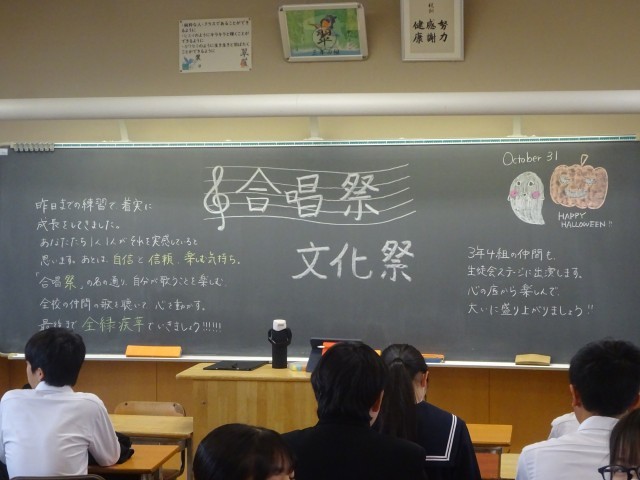 校訓
努力
感謝
健康
合唱祭
文化祭
昨日までの練習で着実に
成長をしてきました。
あなたたち1人1人がそれを実感していると
思います。あとは、自信と信頼、楽しむ気持ち。
「合唱祭」の名の通り、自分が歌うことを楽しむ
全校の仲間の歌を聴いて、心を動かす。
最後まで全緑疾享でいきましょう!!!!!
October 31
HAPPY
HALLOWEEN!!
3年4組の仲間も、
生徒会ステージに出演します。
心の底から楽しんで、
大いに盛り上がりましょう!!